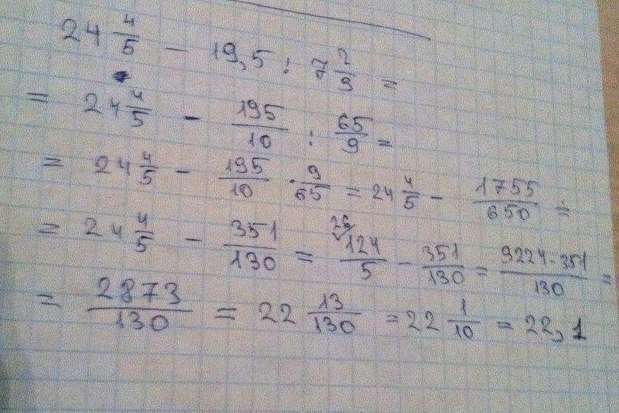 24 4/5 - 19,5 : 7 2/9 =
= 24 4/5 - 195/10 : 65/9 =
= 24 4/5 - 195/10 · 9/65 = 24 4/5 - 1755/650 =
= 24 4/5 - 351/130 = 26/ 124/5 - 351/130 = 9224-351/130 =
= 2873/130 = 22 13/130 = 22 1/10 = 22,1